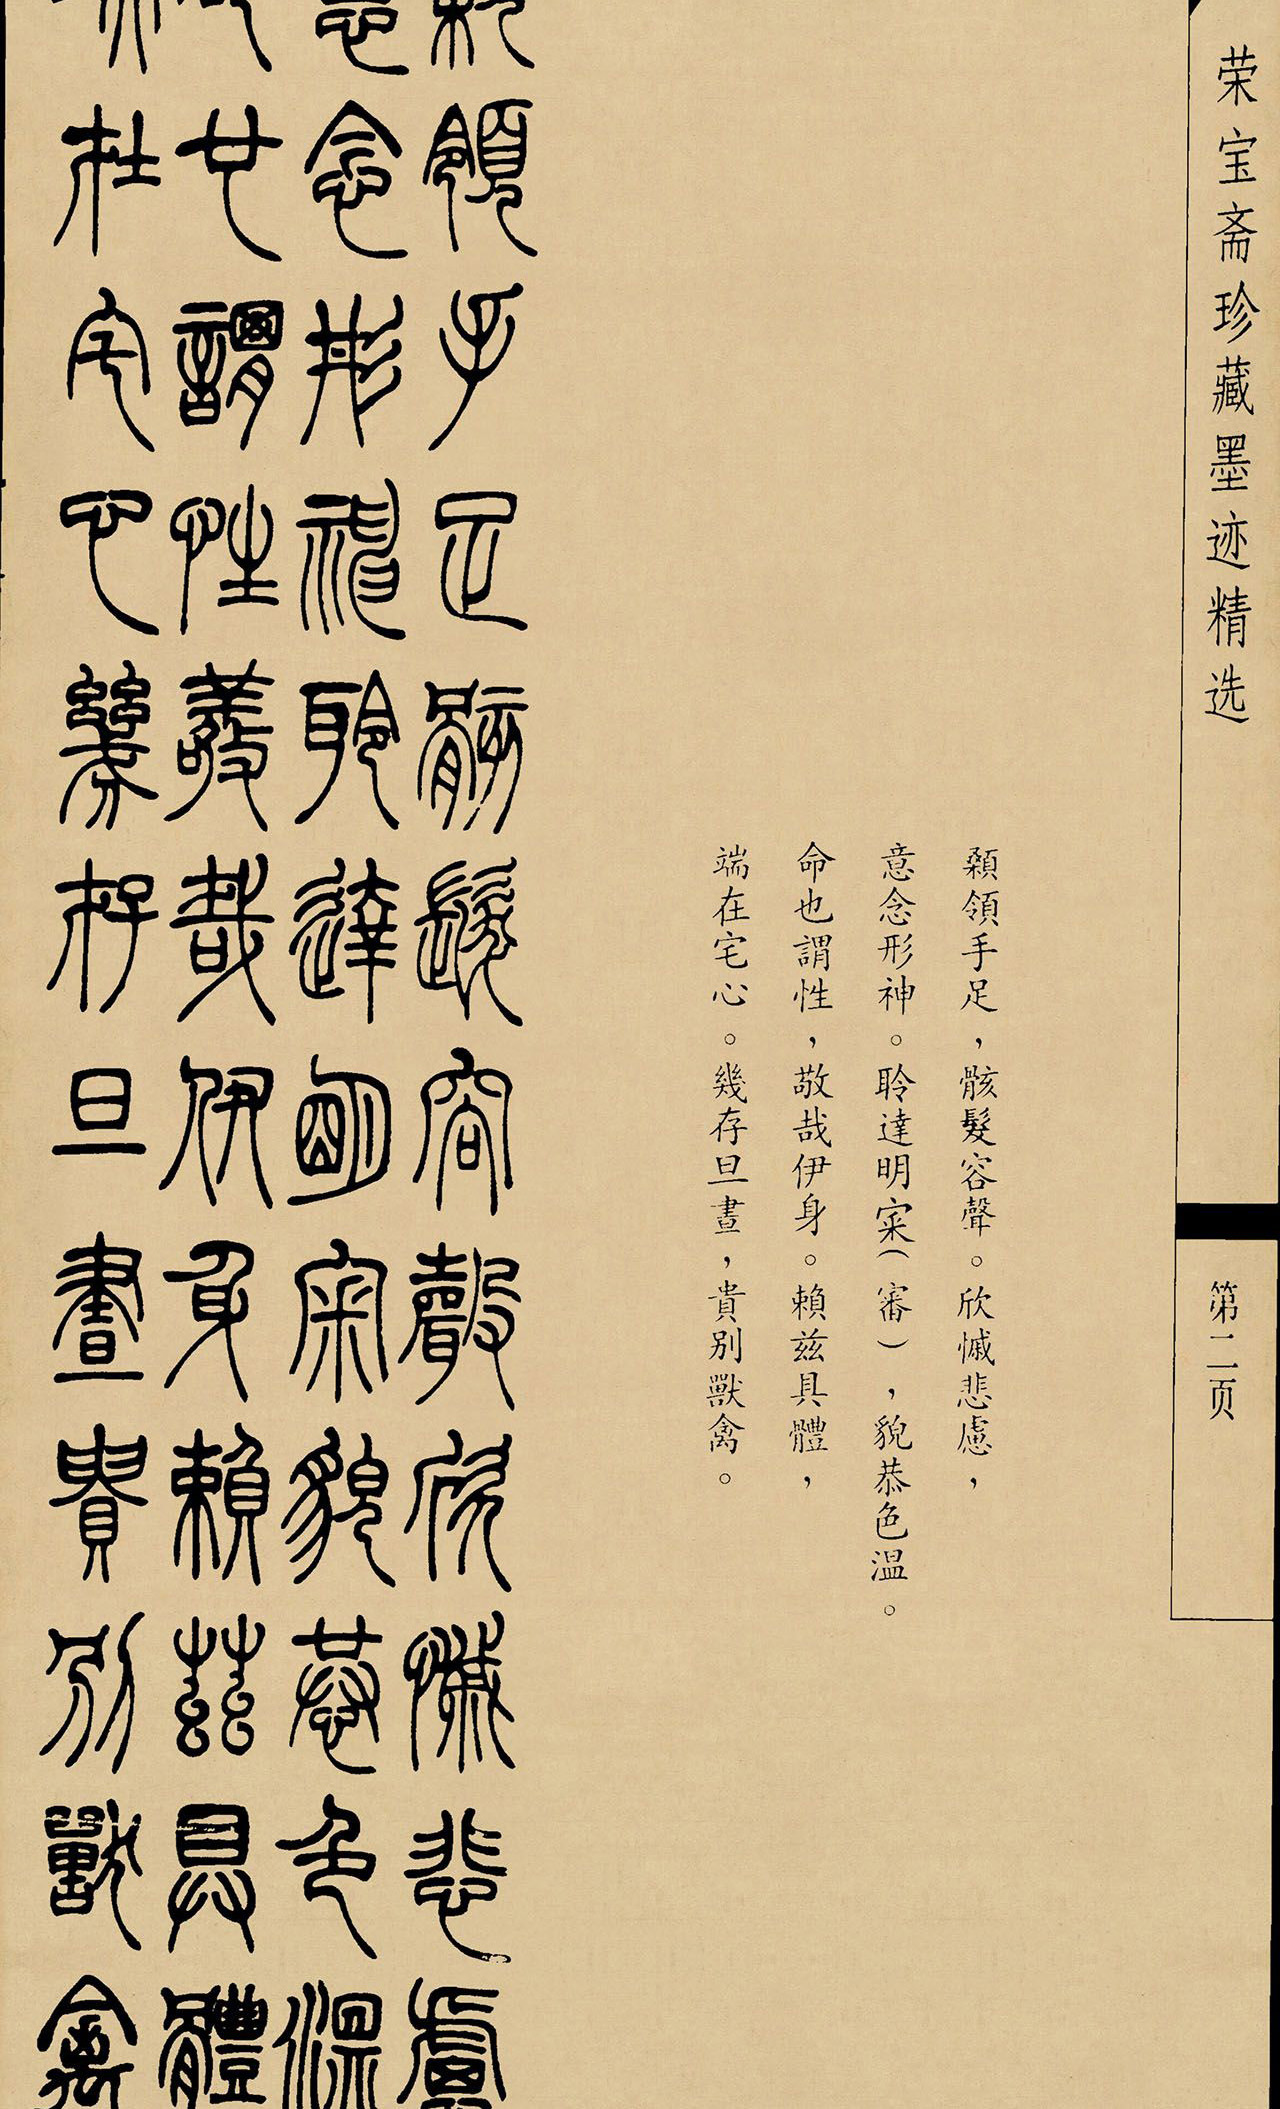 荣宝斋珍藏墨迹精选
第二页
顙領手足，骸髮容聲。欣慽悲慮，
意念形神。聆達明寀（審），貌恭色温。
命也謂性，敬哉伊身。賴兹具體，
端在宅心。幾存旦晝，貴別獸禽。
領手足骸髮容聲欣慽悲慮
念形神聆達明寀貌恭色温
也謂性敬哉伊身賴兹具體
在宅心幾存旦晝貴別獸禽